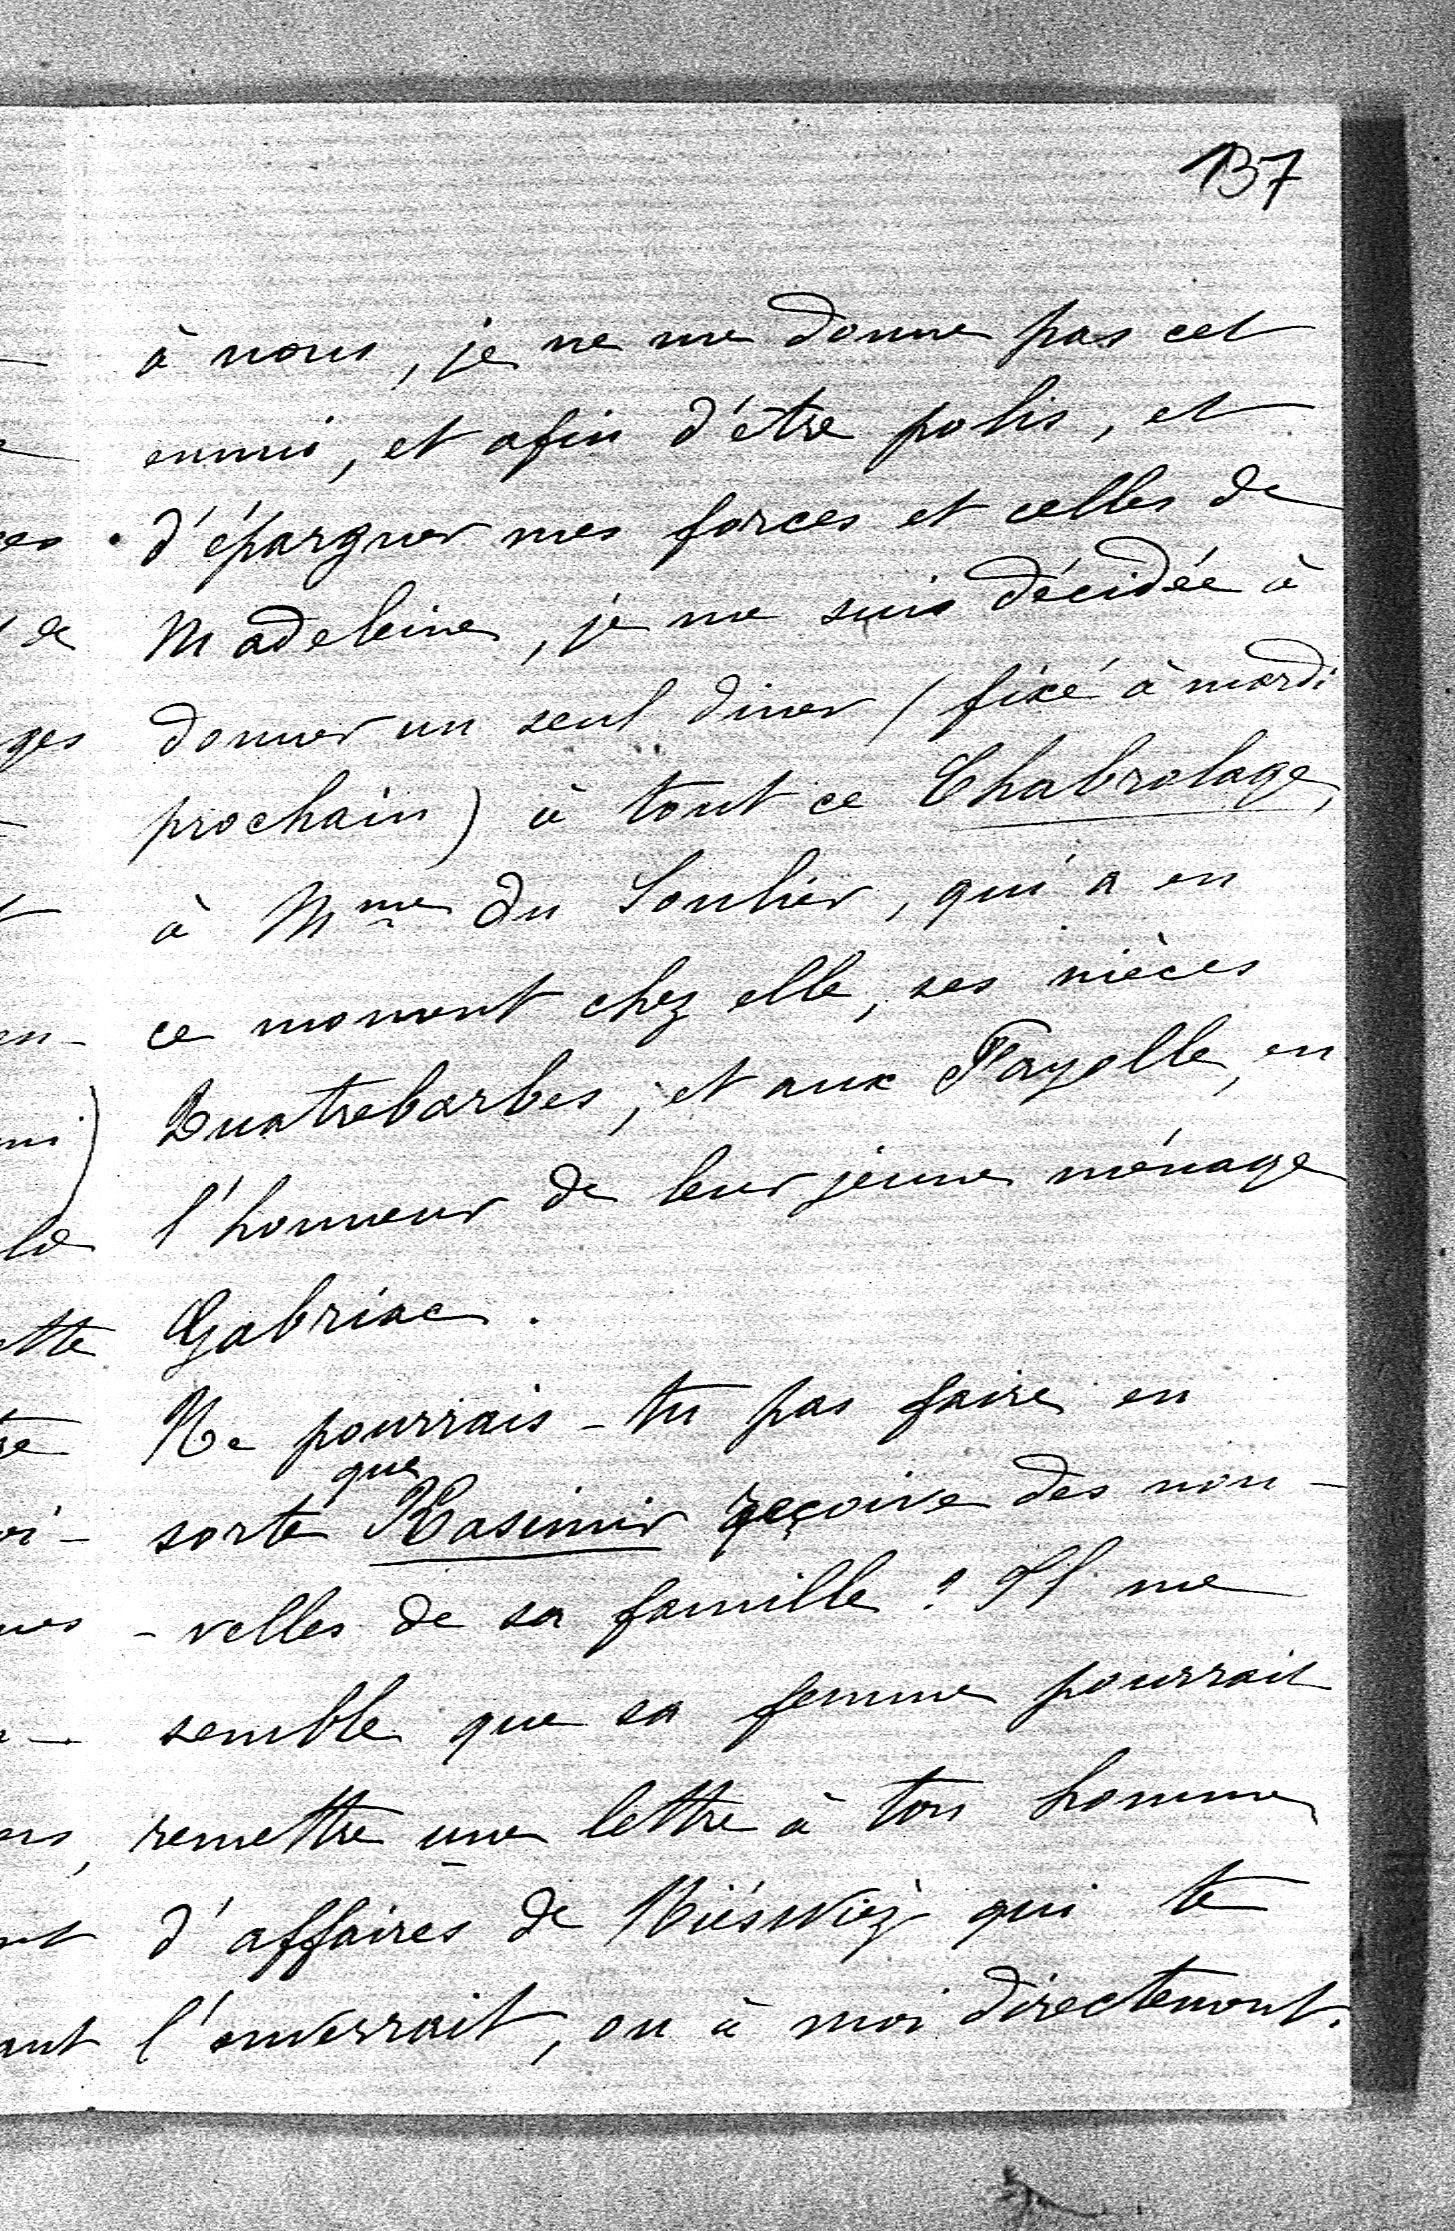 137
à nous, je ne me donne pas cet
ennui, et afin d'être polis, et
d'épargner mes forces et celles de
Madeleine, je me suis décidée à
donner un seul diner (fixé à mardi
prochain) à tout ce Chabrolage,
à Mme du Soulier, qui a en
ce moment chez elle, ses nièces
Quatrebarbes, et aux Fayolle, en
l'honneur de leur jeune ménage
Gabriac.
Ne pourrais-tu pas faire en
que
sorte Kasimir reçoive des nou-
-velles de sa famille? Il me
semble que sa femme pourrait
remettre une lettre à ton homme
d'affaires de Niéswiéz qui te
l'enverrait, ou à moi directement.